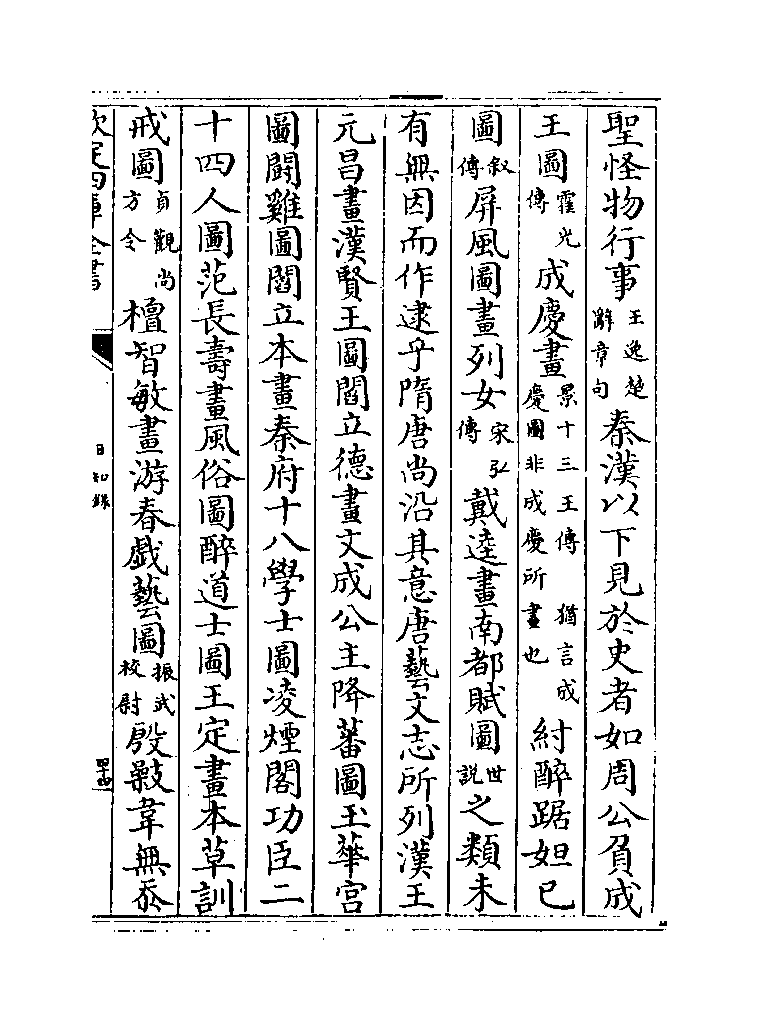 聖怪物行事王逸楚辭章句秦漢以下見於史者如周公負成
王圖霍光傳成慶畫景十三王傳 猶言成慶圖非成慶所畫也紂醉踞妲已
圖叙傳屏風圖畫列女宋弘傳戴逵畫南都賦圖世說之類未
有無因而作逮乎隋唐尚沿其意唐藝文志所列漢王
元昌畫漢賢王圖閻立德畫文成公主降蕃圖玉華宮
圖闘雞圖閻立本畫秦府十八學士圖凌煙閣功臣二
十四人圖范長壽畫風俗圖醉道士圖王定畫本草訓
戒圖貞觀尚方令檀智敏畫游春戲藝圖振武校尉殷韋無忝
欽定四庫全書
日知錄